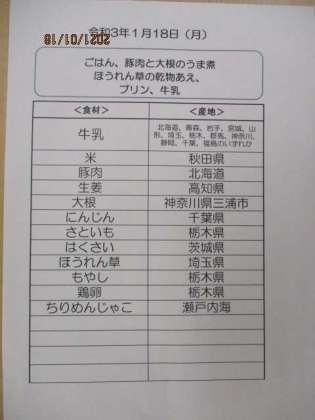 令和3年1月18日（月）
2021/01/18
ごはん、豚肉と大根のうま煮
ほうれん草の乾物あえ、
プリン、牛乳
＜食材＞ ＜産地＞
牛乳 北海道、青森、岩手、宮城、山形、埼玉、栃木、群馬、神奈川、静岡、千葉、福島のいずれか
米 秋田県
豚肉 北海道
生姜 高知県
大根 神奈川県三浦市
にんじん 千葉県
さといも 栃木県
はくさい 茨城県
ほうれん草 埼玉県
もやし 栃木県
鶏卵 栃木県
ちりめんじゃこ 瀬戸内海